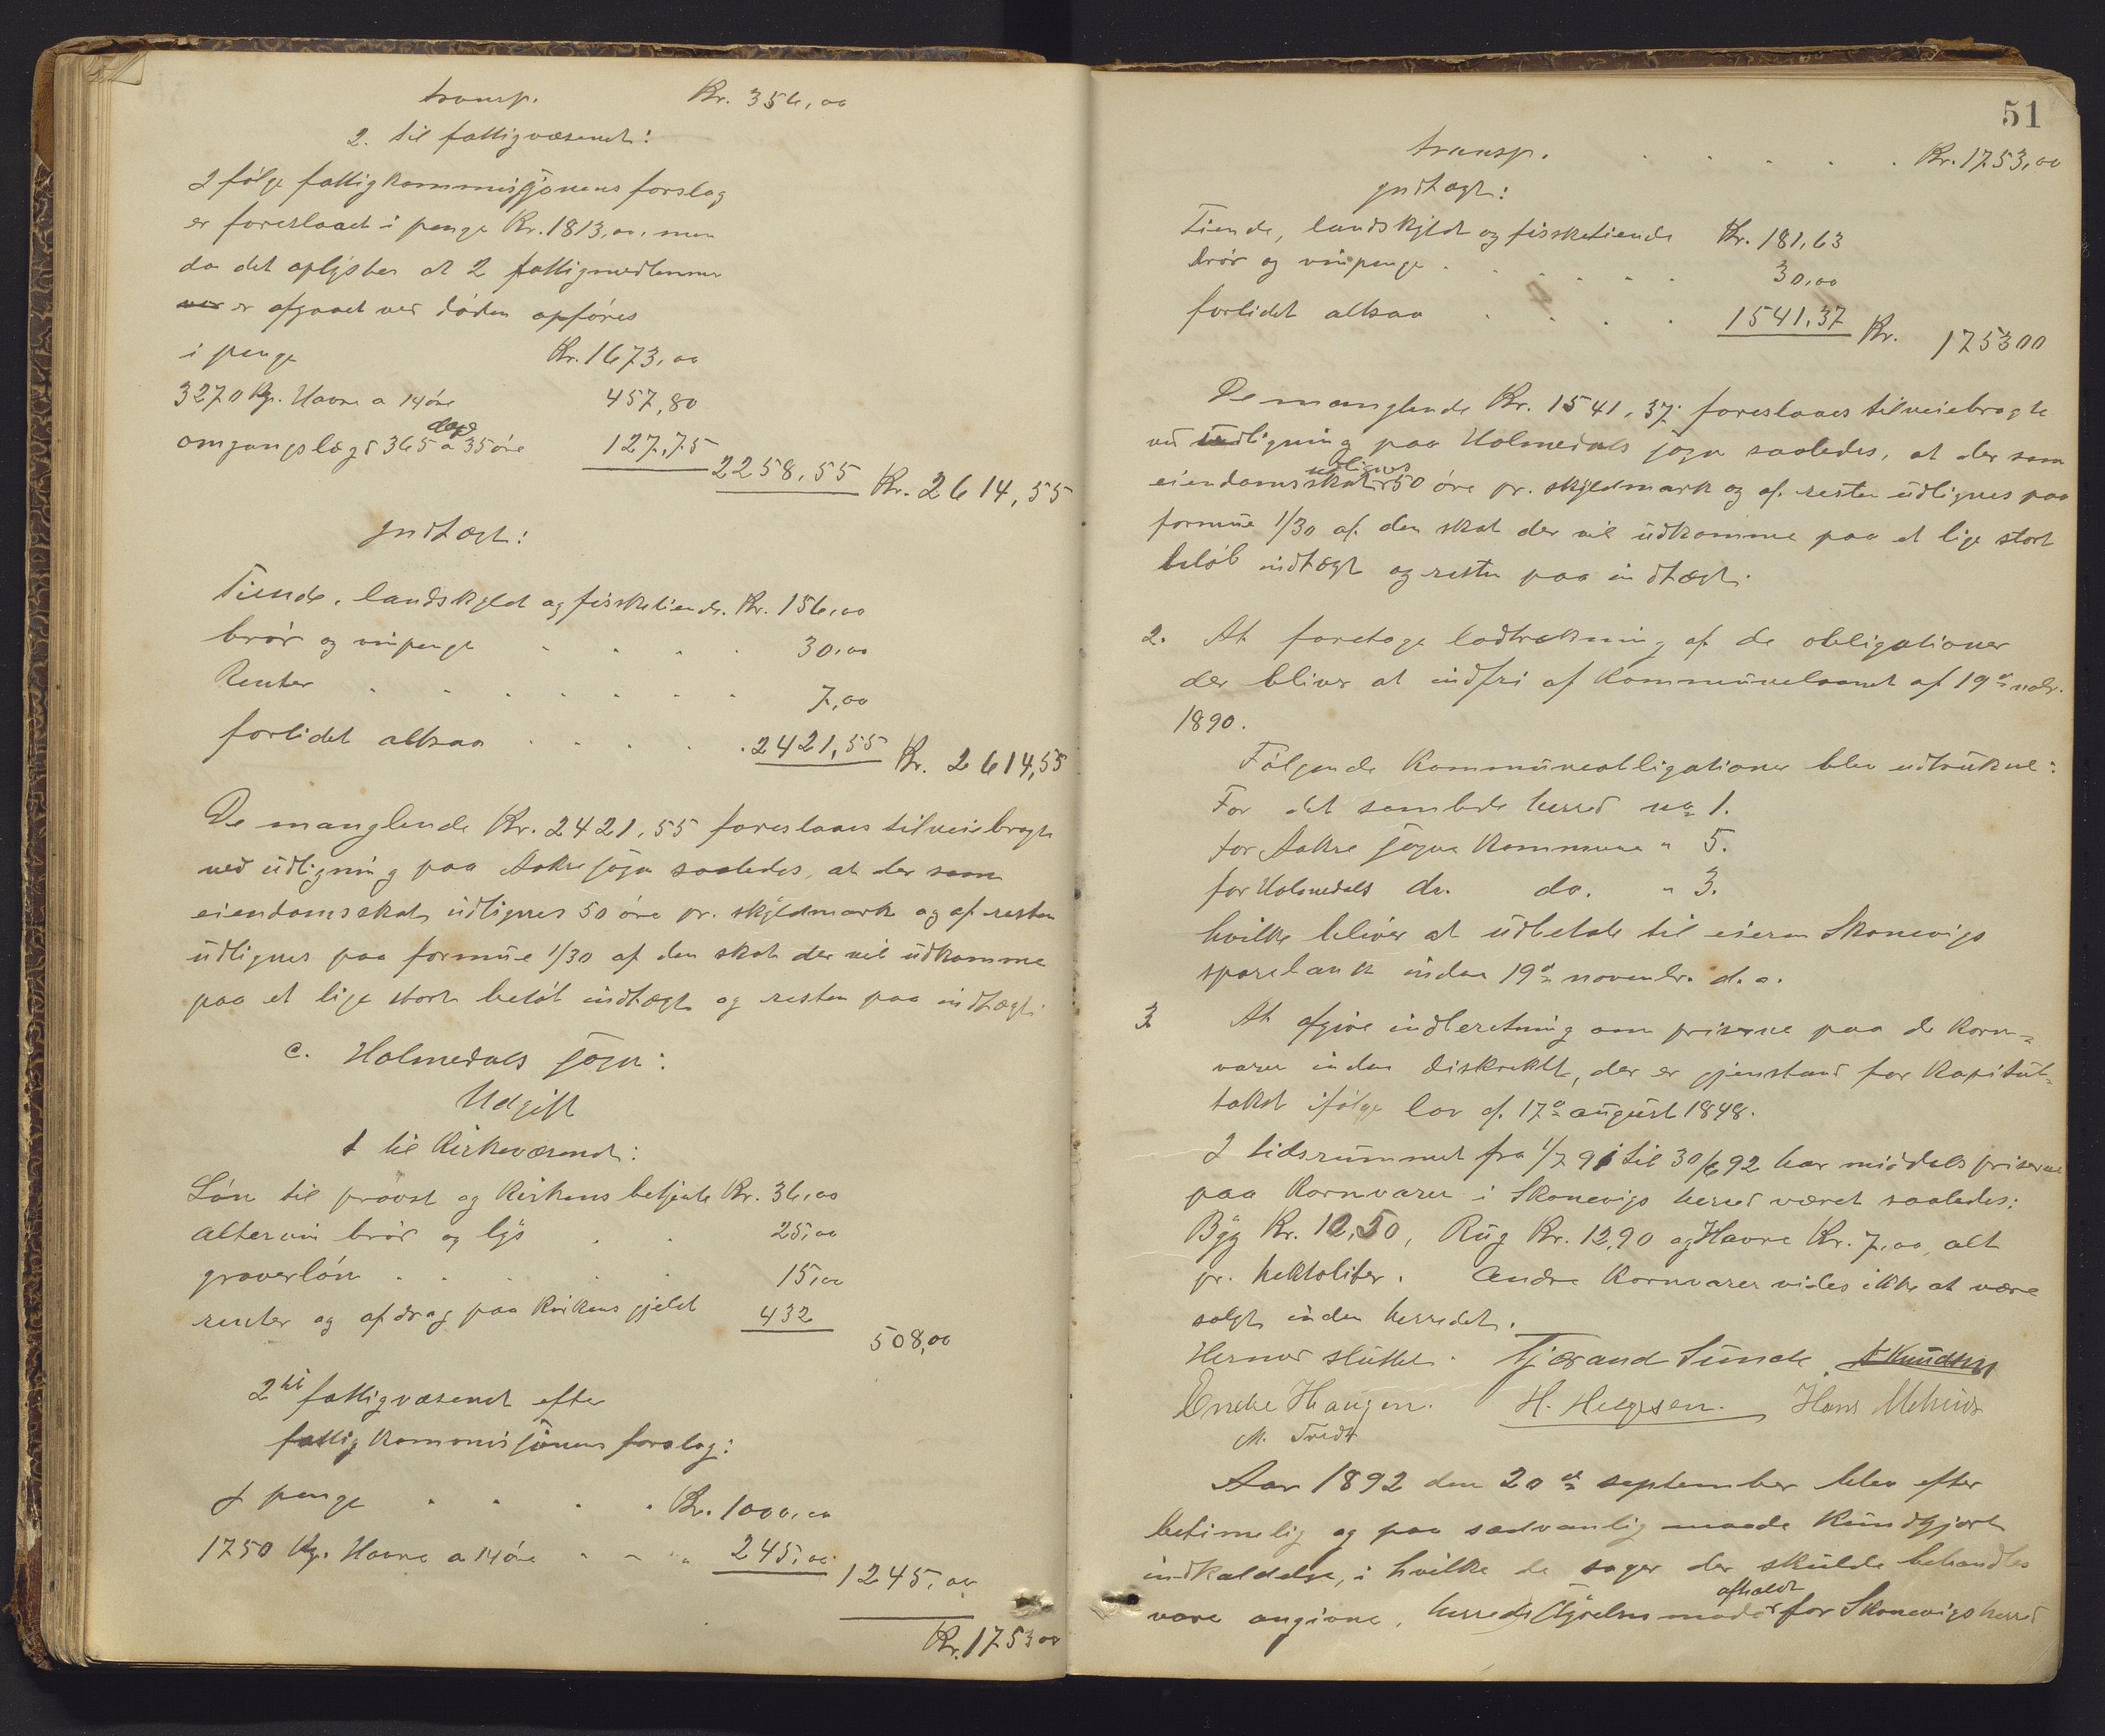 transp. Kr. 356,00
2. til fattigvæsenet:
I følge fattigkommissjonens forslag
er foreslaaet i penge Kr. 1813,00, men
da det oplyses at 2 fattigmedlemmer
var er afgaaet ved døden opføres
i penge Kr. 1673,00
3270 Kg. Havre a 14 øre 457,80
omgangslægd 365 dage a 35 øre 127,75
2258,55 Kr. 2614,55
Indtægt:
Tiende, landskyld og fisketiende. Kr. 156,00
brød og vinpenge 30,00
Renter 7,00
forlidet altsaa 2421,55 Kr. 2614,55
De manglende Kr. 2421,55 foreslaaes tilveiebragte
ved udligning paa Aakre sogn saaledes, at der som
eiendomsskat udlignes 50 øre pr. skyldmark og af resten
udlignes paa formue 1/30 af den skat der vil udkomme
paa et lige stort beløb indtægt og resten paa indtægt.
c. Holmedals sogn:
Udgift
1 til Kirkevæsenet:
Løn til provst og kirkens betjente Kr. 36,00
altervin brød og lys 25,00
graverløn 15,00
renter og afdrag paa kirkens gjeld 432
508,00
2 til fattigvæsenet efter
fattigkommissjonens forslag:
I penge Kr. 1000,00
1750 Kg. Havre a 14 øre 245,00
1245,00
Kr. 1753 00
51
transp. Kr. 1753,00
Indtægt:
Tiende, landskyld og fissketiende Kr. 181,63
brød og vinpenge 30,00
forlidet altsaa 1541,37 Kr. 1753 00
De manglende Kr. 1541,37 foreslaaes tilveiebragte
ved udligning paa Holmedals sogn saaledes, at der som
eiendomsskat udlignes 50 øre pr. skyldmark og af resten udlignes paa
formue 1/30 af den skat der vil udkomme paa et lige stort
beløb indtægt og resten paa indtægt.
2. At foretage lodtrækning af de obligationer
der bliver at indfri af Kommunelaanet af 19de novbr.
1890.
Følgende Kommuneobligationer blev udtrukne:
For det samlede herred no 1.
for Aakre sogns Kommune " 5.
for Holmedals do. do. " 3.
hvilke bliver at udbetale til eieren Skonevigs
sparebank inden 19de novembr. d. a.
3 At afgive indberetning om priserne paa de korn-
varer inden distriktet, der er gjenstand for kapitul-
takst ifølge lov af 17de august 1848.
I tidsrummet fra 1/7 91 til 30/6 92 har middelspriserne
paa kornvarer i Skonevigs herred været saaledes:
Byg Kr. 10,50, Rug Kr. 12,90 og Havre Kr. 7,00, alt
pr. hektoliter. Andre kornvarer vides ikke at være
solgt inden herredet.
Hermed sluttet. Tjærand Sunde A Knudsen
Endre Haugen. H. Helgesen. Hans Mehus
M. Tredt
Aar 1892 den 20de september blev efter
betimelig og paa sædvanlig maade kundgjort
indkaldelse, i hvilke de sager der skulde behandles
vare angivne, herredsstyrelsesmøde afholdt for Skonevigs herred